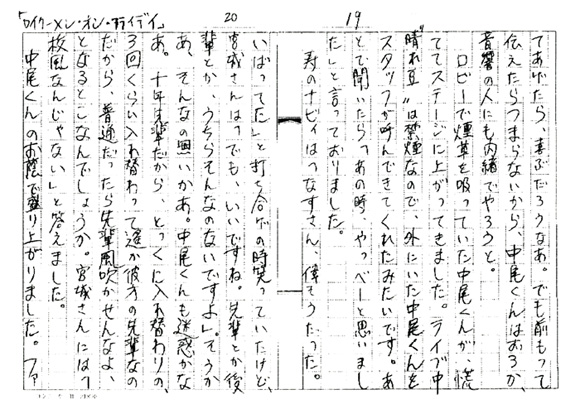 「ロイクーメン・オン・ライディ」
20
19
てあげたら、喜ぶだろうなあ。でも前もって
伝えたらつまらないから、中尾くんはおろか、
音響の人にも内緒でやろうと。
ロビーで煙草を吸っていた中尾くんが、慌
ててステージに上がってきました。ライブ中
“晴れ豆”は禁煙なので、外にいた中尾くんを
スタッフが呼んできてくれたみたいです。あ
とで聞いたら「あの時、やっべーと思いまし
た」と言っておりました。
寿のナビィは「つなすさん、偉そうだった。
いばってた」と打ち合わせの時笑っていたけど、
宮城さんは「でも、いいですね。先輩とか後
輩とか、うちらそんなのないですよ」。そうか
あ、そんなの悪いかあ。中尾くんも迷惑かな
あ。十年先輩だから、とっくに入れ替わりの、
3回くらい入れ替わって遥か彼方の先輩なの
だから、普通だったら先輩風吹かせんなよ、
となるとこなんでしょうか。宮城さんには「
校風なんじゃない」と答えました。
中尾くんのお蔭で盛り上がりました。ファ